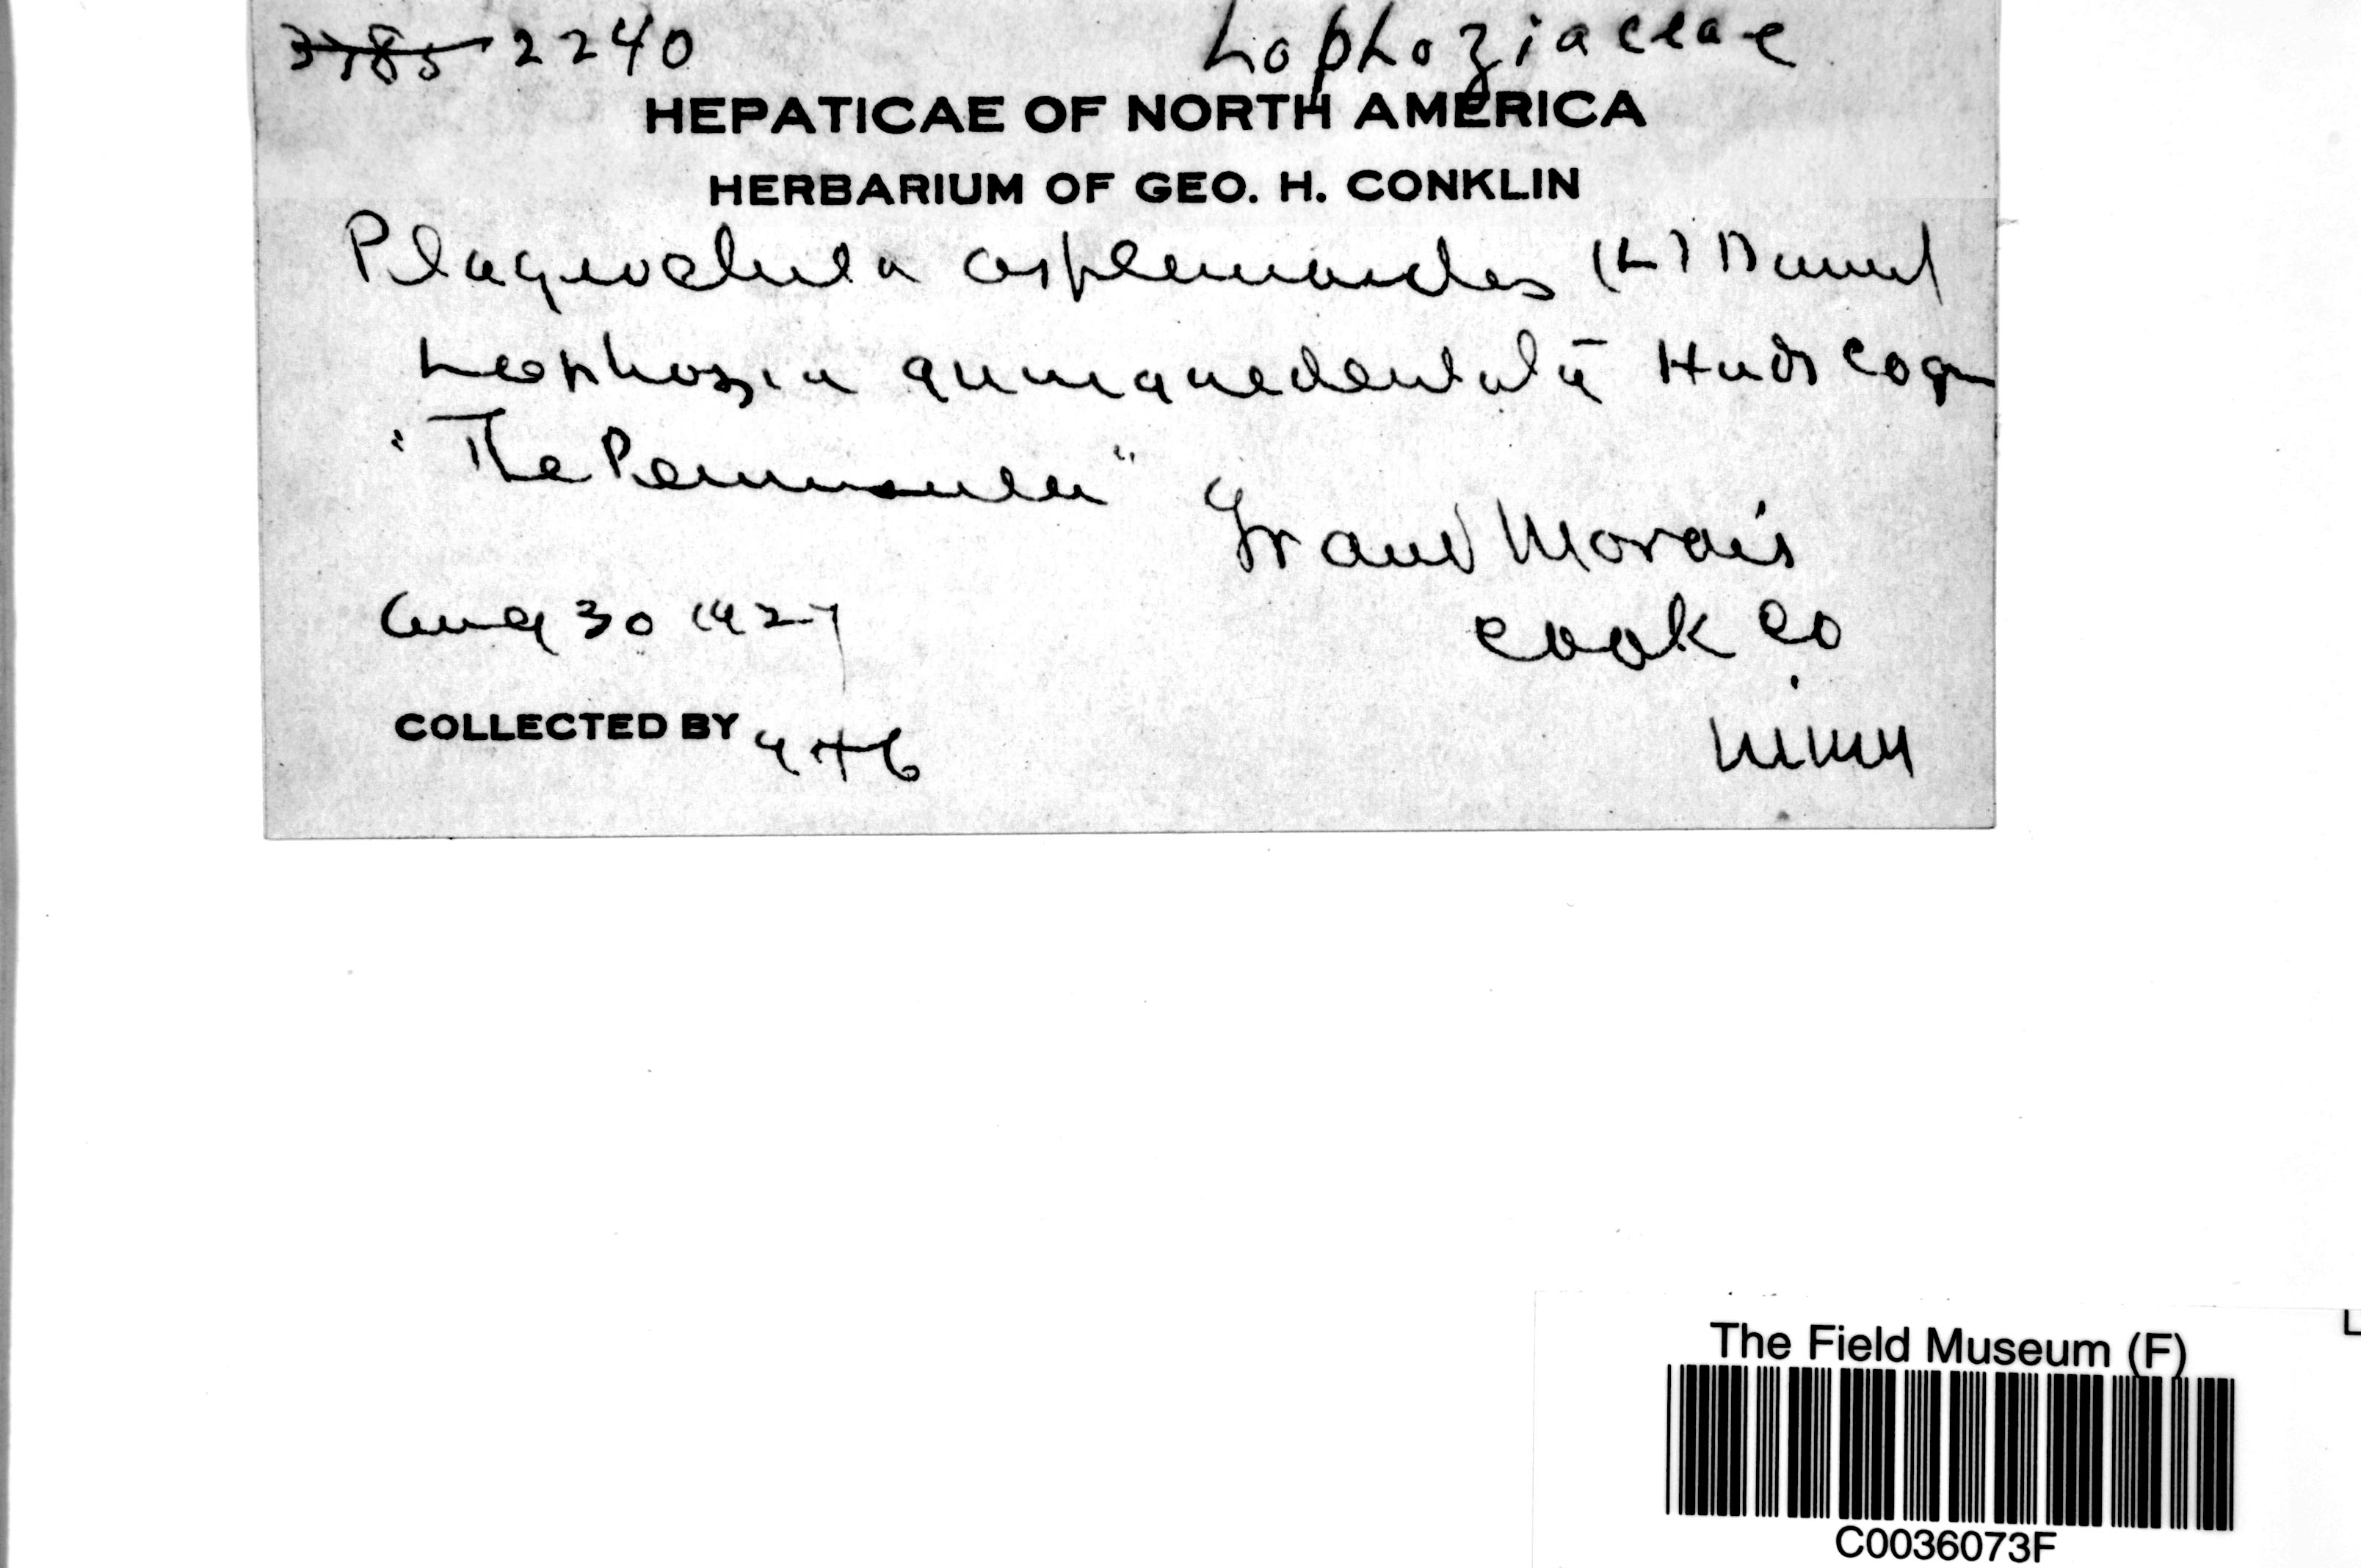 3785 2240 Lophoziaceae
HEPATICAE OF NORTH AMERICA
HERBARIUM OF GEO. H. CONKLIN
Plagiochila asplenioides (L) Dumt
Lophozia quinquedentata Huds Cogn
"The Peninsula"
Grand Morais
Aug 30 1927
Cook Co
COLLECTED BY
Minn
The Field Museum (F)
C0036073F